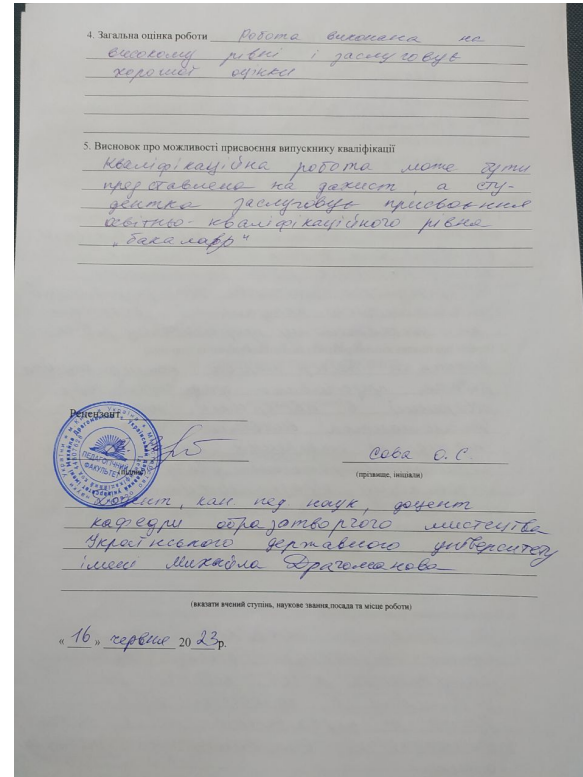 4. Загальна оцінка роботи Робота виконана на
високому рівні і заслуговує
хорошої оцінки
5. Висновок про можливості присвоєння випускнику кваліфікації
Кваліфікаційна робота може бути
представлена на захист, а сту-
дентка заслуговує присвоєння
освітньо-кваліфікаційного рівня
„бакалавр"
Рецензент,
ПЕДАГОГІЧНИЙ
ФАКУЛЬТЕТ
(підпис)
Сова О.С.
(прізвище, ініціали)
Доцент, кан. пед. наук, доцент
кафедри образотворчого мистецтва
Українського державного університету
імені Михайла Драгоманова
(вказати вчений ступінь, наукове звання,посада та місце роботи)
« 16 » червня 20 23р.